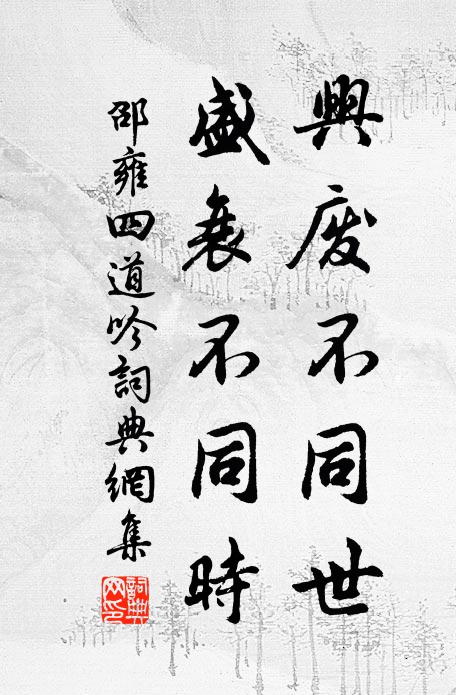 興废不同世
盛衰不同時
邵雍四道吟詞典網集